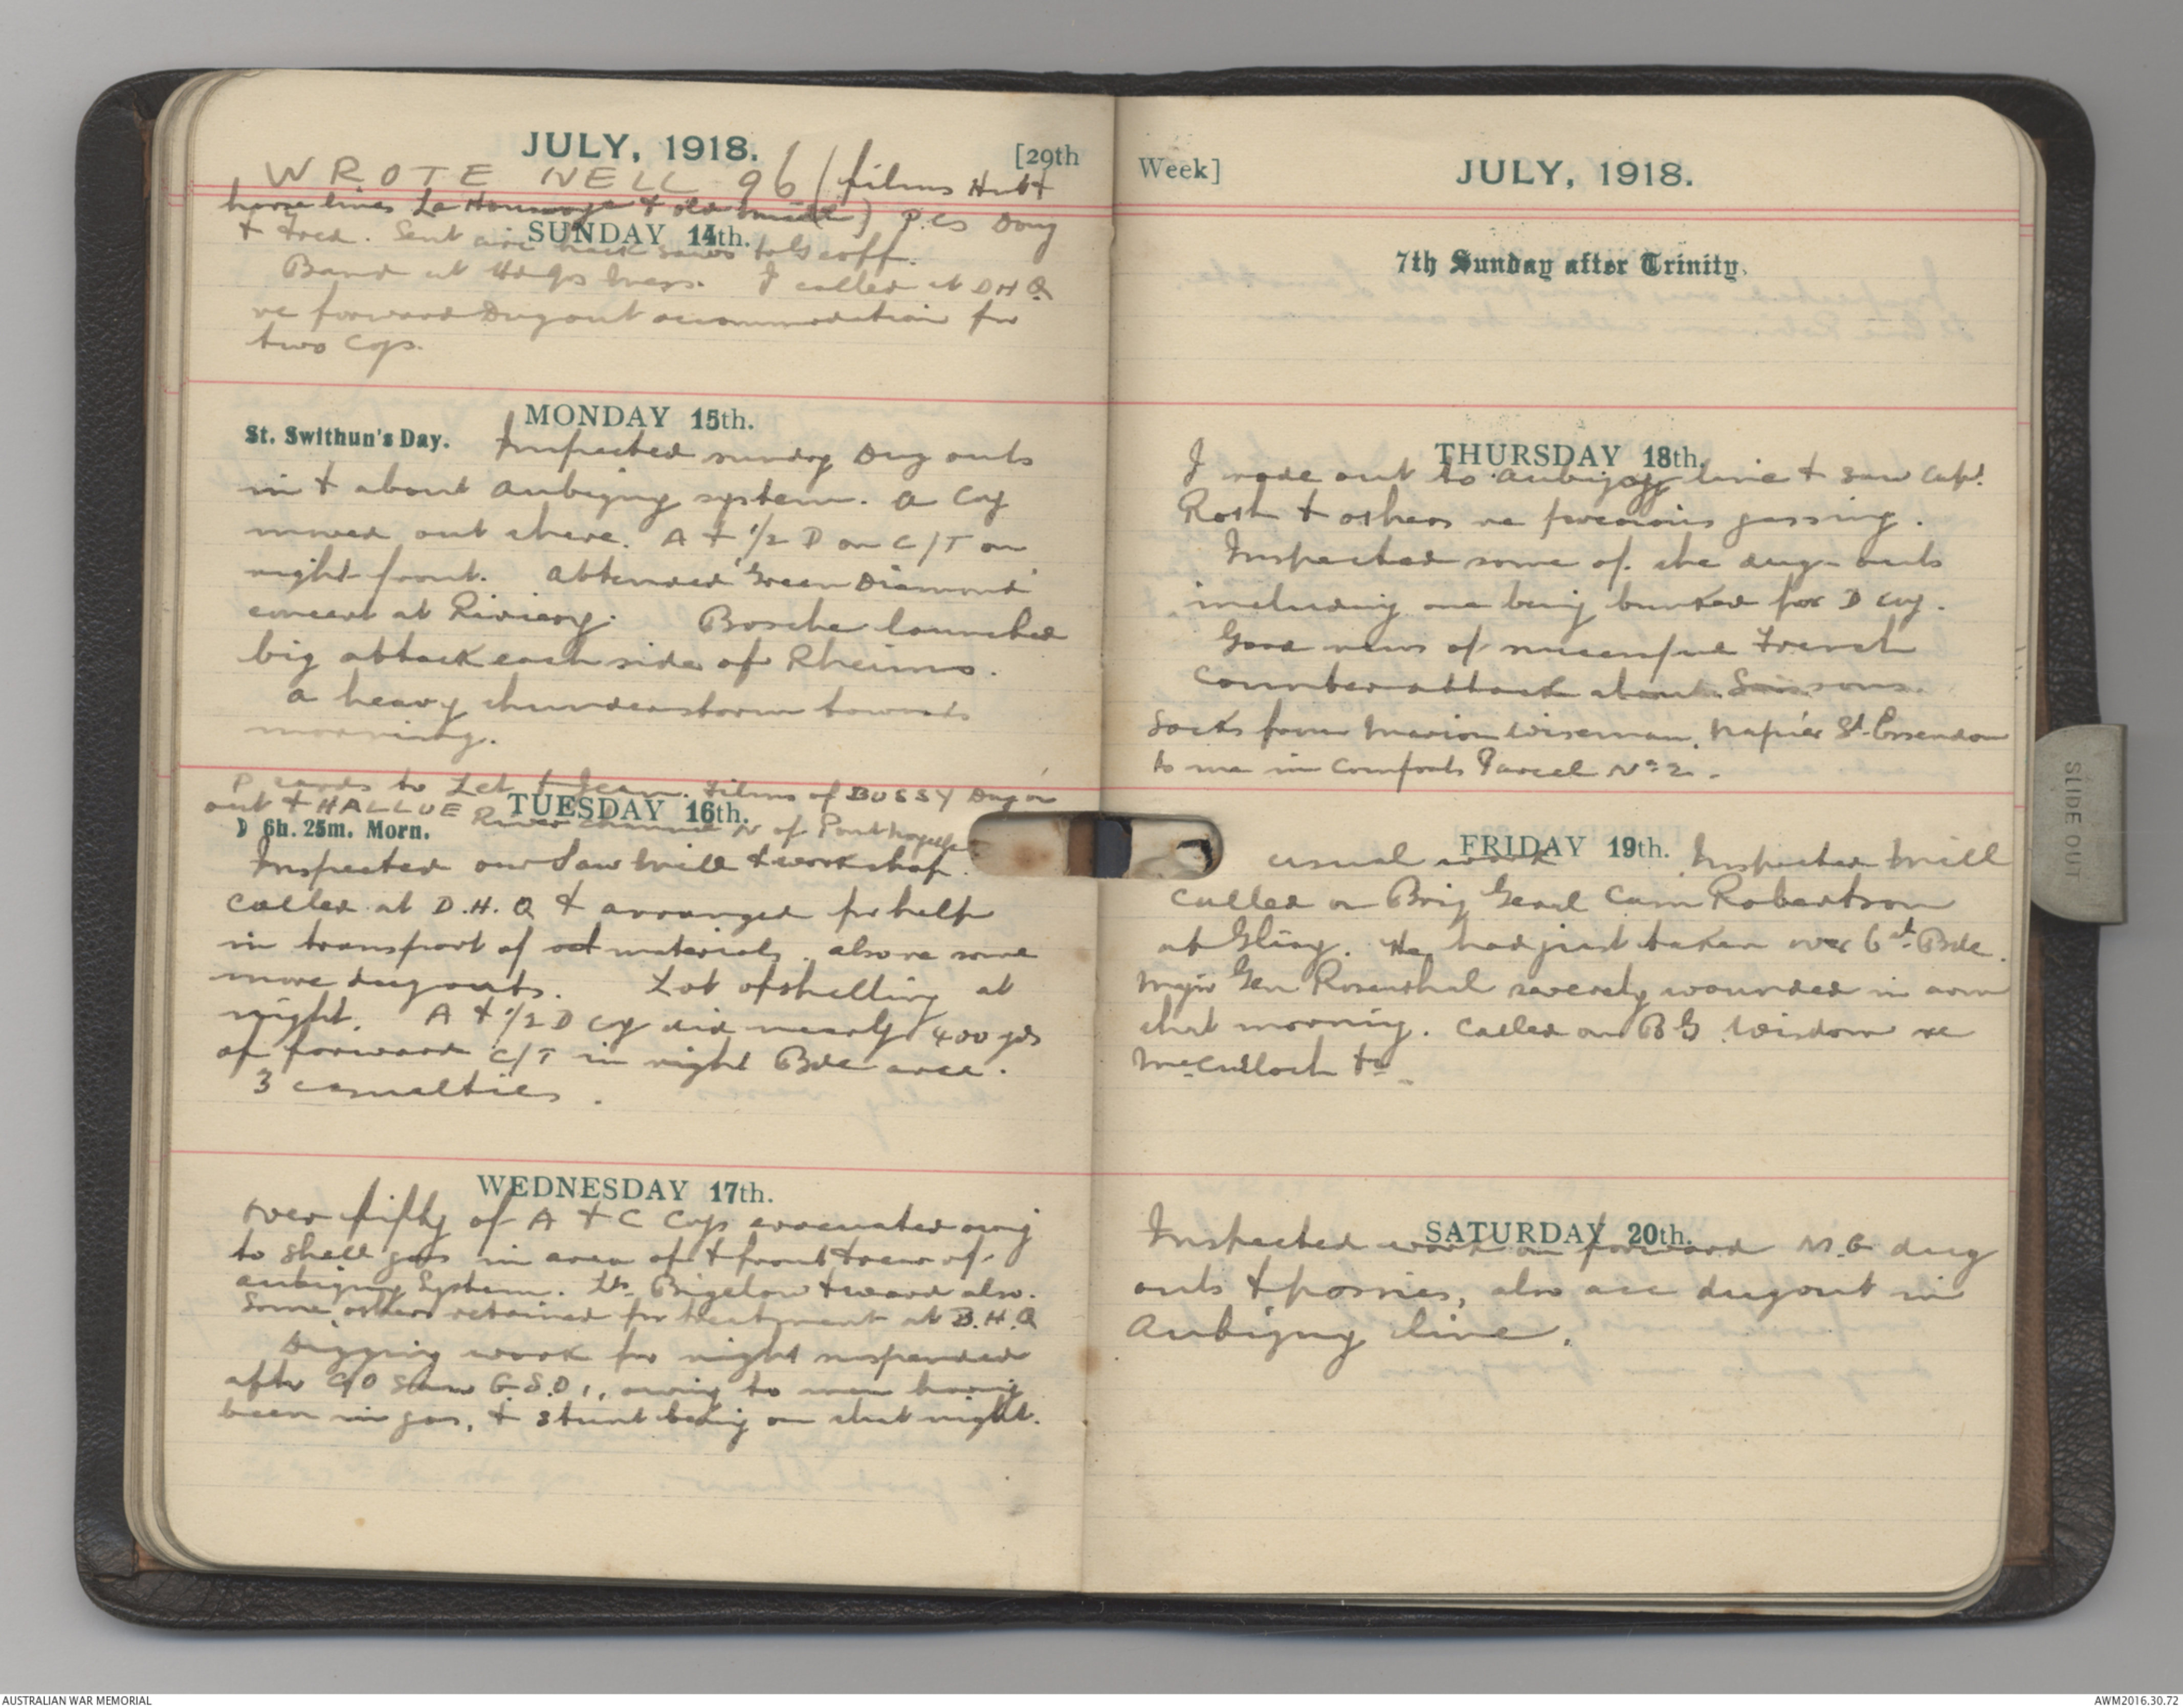 JULY, 1918.
[29th
WROTE NELL 96 (films Hut &
horse lines La Houssoye & old mill) P.Cs Doug
& Fred. Sent
SUNDAY 14th.
Band at Hdqs Mess. I called at DHQ
re forward Dugout accommodation for
two Coys.
MONDAY 15th.
St. Swithun's Day. Inspected sundry Dug outs
in & about Aubigny system. A Coy
moved out there. A & 1/2 D on C/T on
right front. Attended 'Green Diamond'
concert at Riviery. Bosche launched
big attack each side of Rheims.
A heavy thunderstorm towards
morning.
P cards to Let & Jean. Films of BUSSY Dug
out & HALLUE River channel N of Pont Noyelles
TUESDAY 16th.
☽ 6h. 25m. Morn.
Inspected our Saw Mill & workshop.
Called at D.H.Q & arranged for help
in transport of materials. also re some
more dugouts. Lot of shelling at
night. A & 1/2 D Coy did nearly 400 yds
of forward C/T in right Bde area.
3 casualties.
WEDNESDAY 17th.
Over fifty of A & C Coys evacuated owing
to shell gas in area of & front & rear of
Aubigny System. Lts. Bigelow & Ward also.
Some others retained for treatment at B.H.Q
Digging work for night suspended
after C/O saw G.S.O 1, owing to men having
been in gas, & stunt being on that night.
Week]
JULY, 1918.
7th Sunday after Trinity.
THURSDAY 18th.
I rode out to Aubigny line & saw Capt.
Roth & others re previous gassing.
Inspected some of the dug-outs
including one being bunked for D Coy.
Good news of successful French
Counter attack about Soissons.
Socks from Marion Wiseman, Napier St. Essendon
to me in Comforts Parcel No 2.
FRIDAY 19th.
usual work. Inspected Mill
Called on Brig Genl Cam Robertson
at Glisy. He had just taken over 6th Bde.
Major Gen Rosenthal severely wounded in arm
that morning. Called on B G Wisdom re
McCulloch &c.
SATURDAY 20th.
Inspected work on forward M.G. dug
outs & possies, also dugout in
Aubigny line.
SLIDE OUT
AUSTRALIAN WAR MEMORIAL
AWM2016.30.72